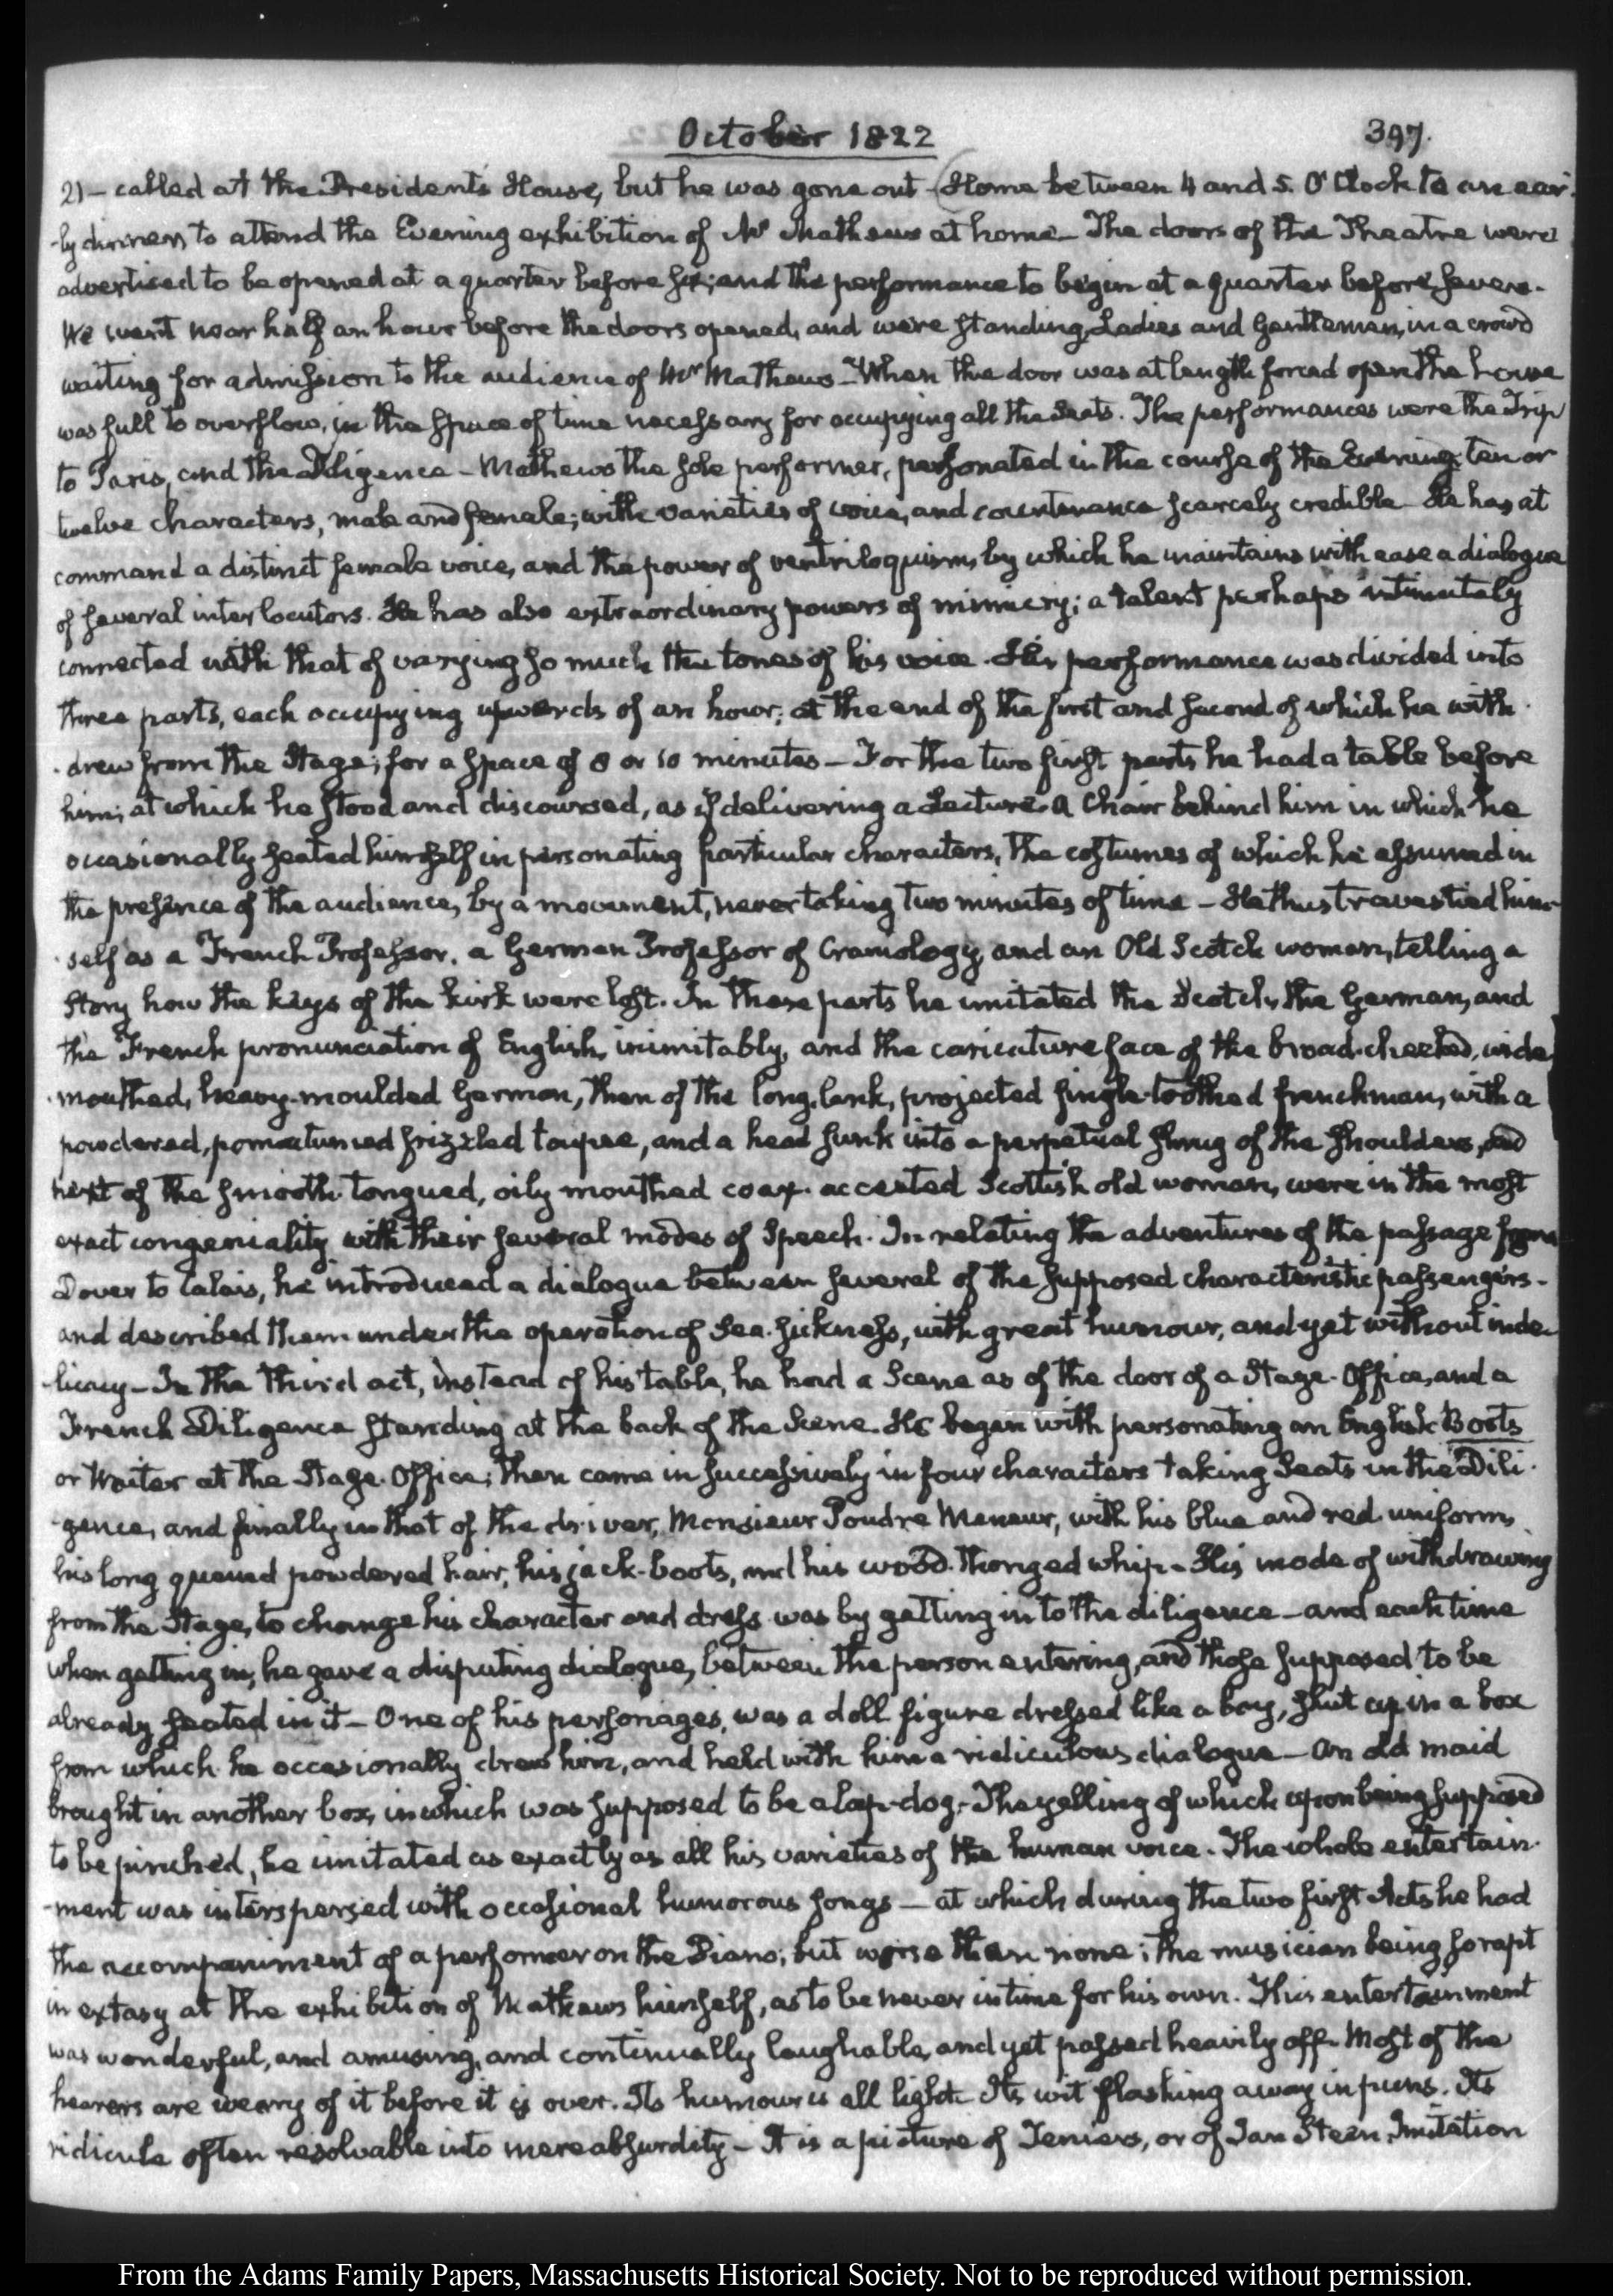 October 1822
397.
2)— called at the Presidents House, but he was gone out — (Home between 4 and 5. O'Clock to an ear-
-ly dinner, to attend the Evening exhibition of Mr Mathews at home— The doors of the Theatre were
advertised to be opened at a quarter before six; and the performance to begin at a quarter before seven.
We went near half an hour before the doors opened, and were standing, Ladies and Gentlemen, in a crowd
waiting for admission to the audience of Mr Mathews— When the door was at length forced open the house
was full to overflow, in the space of time necessary for occupying all the seats. The performances were the Trip
to Paris, and the Diligence — Mathews the sole performer, personated in the course of the Evening ten or
twelve characters, male and female; with varieties of voice, and countenance scarcely credible— He has at
command a distinct female voice, and the power of ventriloquism, by which he maintains with ease a dialogue
of several interlocutors. He has also extraordinary powers of mimicry; a talent perhaps intimately
connected with that of varying so much the tones of his voice. His performance was divided into
three parts, each occupying upwards of an hour; at the end of the first and second of which he with-
-drew from the Stage, for a space of 8 or 10 minutes — For the two first parts he had a table before
him; at which he stood and discoursed, as if delivering a Lecture. A Chair behind him in which he
occasionally seated himself in personating particular characters, the costumes of which he assumed in
the presence of the audience, by a movement, never taking two minutes of time — He thus travestied him-
-self as a French Professor, a German Professor of Craniology, and an Old Scotch woman, telling a
story how the keys of the kirk were lost. In these parts he imitated the Scotch, the German, and
the French pronunciation of English, inimitably, and the caricature face of the broad-cheeked, wide-
-mouthed, heavy-moulded German, then of the long, lank, projected single-toothed frenchman, with a
powdered, pomatumed frizzled toupee, and a head sunk into a perpetual shrug of the shoulders, and
next of the smooth-tongued, oily mouthed coax-accented Scottish old woman, were in the most
exact congeniality with their several modes of Speech. In relating the adventures of the passage from
Dover to Calais, he introduced a dialogue between several of the supposed characteristic passengers—
and described them under the operation of Sea-sickness, with great humour, and yet without inde-
-licacy — In the third act, instead of his table, he had a Scene as of the door of a Stage-Office, and a
French Diligence standing at the back of the Scene. He began with personating an English Boots
or Waiter at the Stage-Office; then came in successively in four characters taking seats in the Dili-
-gence, and finally in that of the driver, Monsieur Poudre Meneur, with his blue and red uniform,
his long queued powdered hair, his jack-boots, and his wood-thonged whip— His mode of withdrawing
from the Stage, to change his character and dress was by getting in to the diligence — and each time
when getting in, he gave a disputing dialogue, between the person entering, and those supposed to be
already seated in it — One of his personages, was a doll figure dressed like a boy, shut up in a box
from which he occasionally drew him, and held with him a ridiculous dialogue — An old maid
brought in another box, in which was supposed to be a lap-dog— The yelling of which upon being supposed
to be pinched, he imitated as exactly as all his varieties of the human voice. The whole entertain-
-ment was interspersed with occasional humorous songs — at which during the two first Acts he had
the accompaniment of a performer on the Piano; but worse than none; the musician being so rapt
in extasy at the exhibition of Mathews himself, as to be never in time for his own. This entertainment
was wonderful, and amusing, and continually laughable, and yet passed heavily off. Most of the
hearers are weary of it before it is over. Its humour is all light. Its wit flashing away in puns. Its
ridicule often resolvable into mere absurdity — It is a picture of Teniers, or of Jan Steen. Imitation
From the Adams Family Papers, Massachusetts Historical Society. Not to be reproduced without permission.